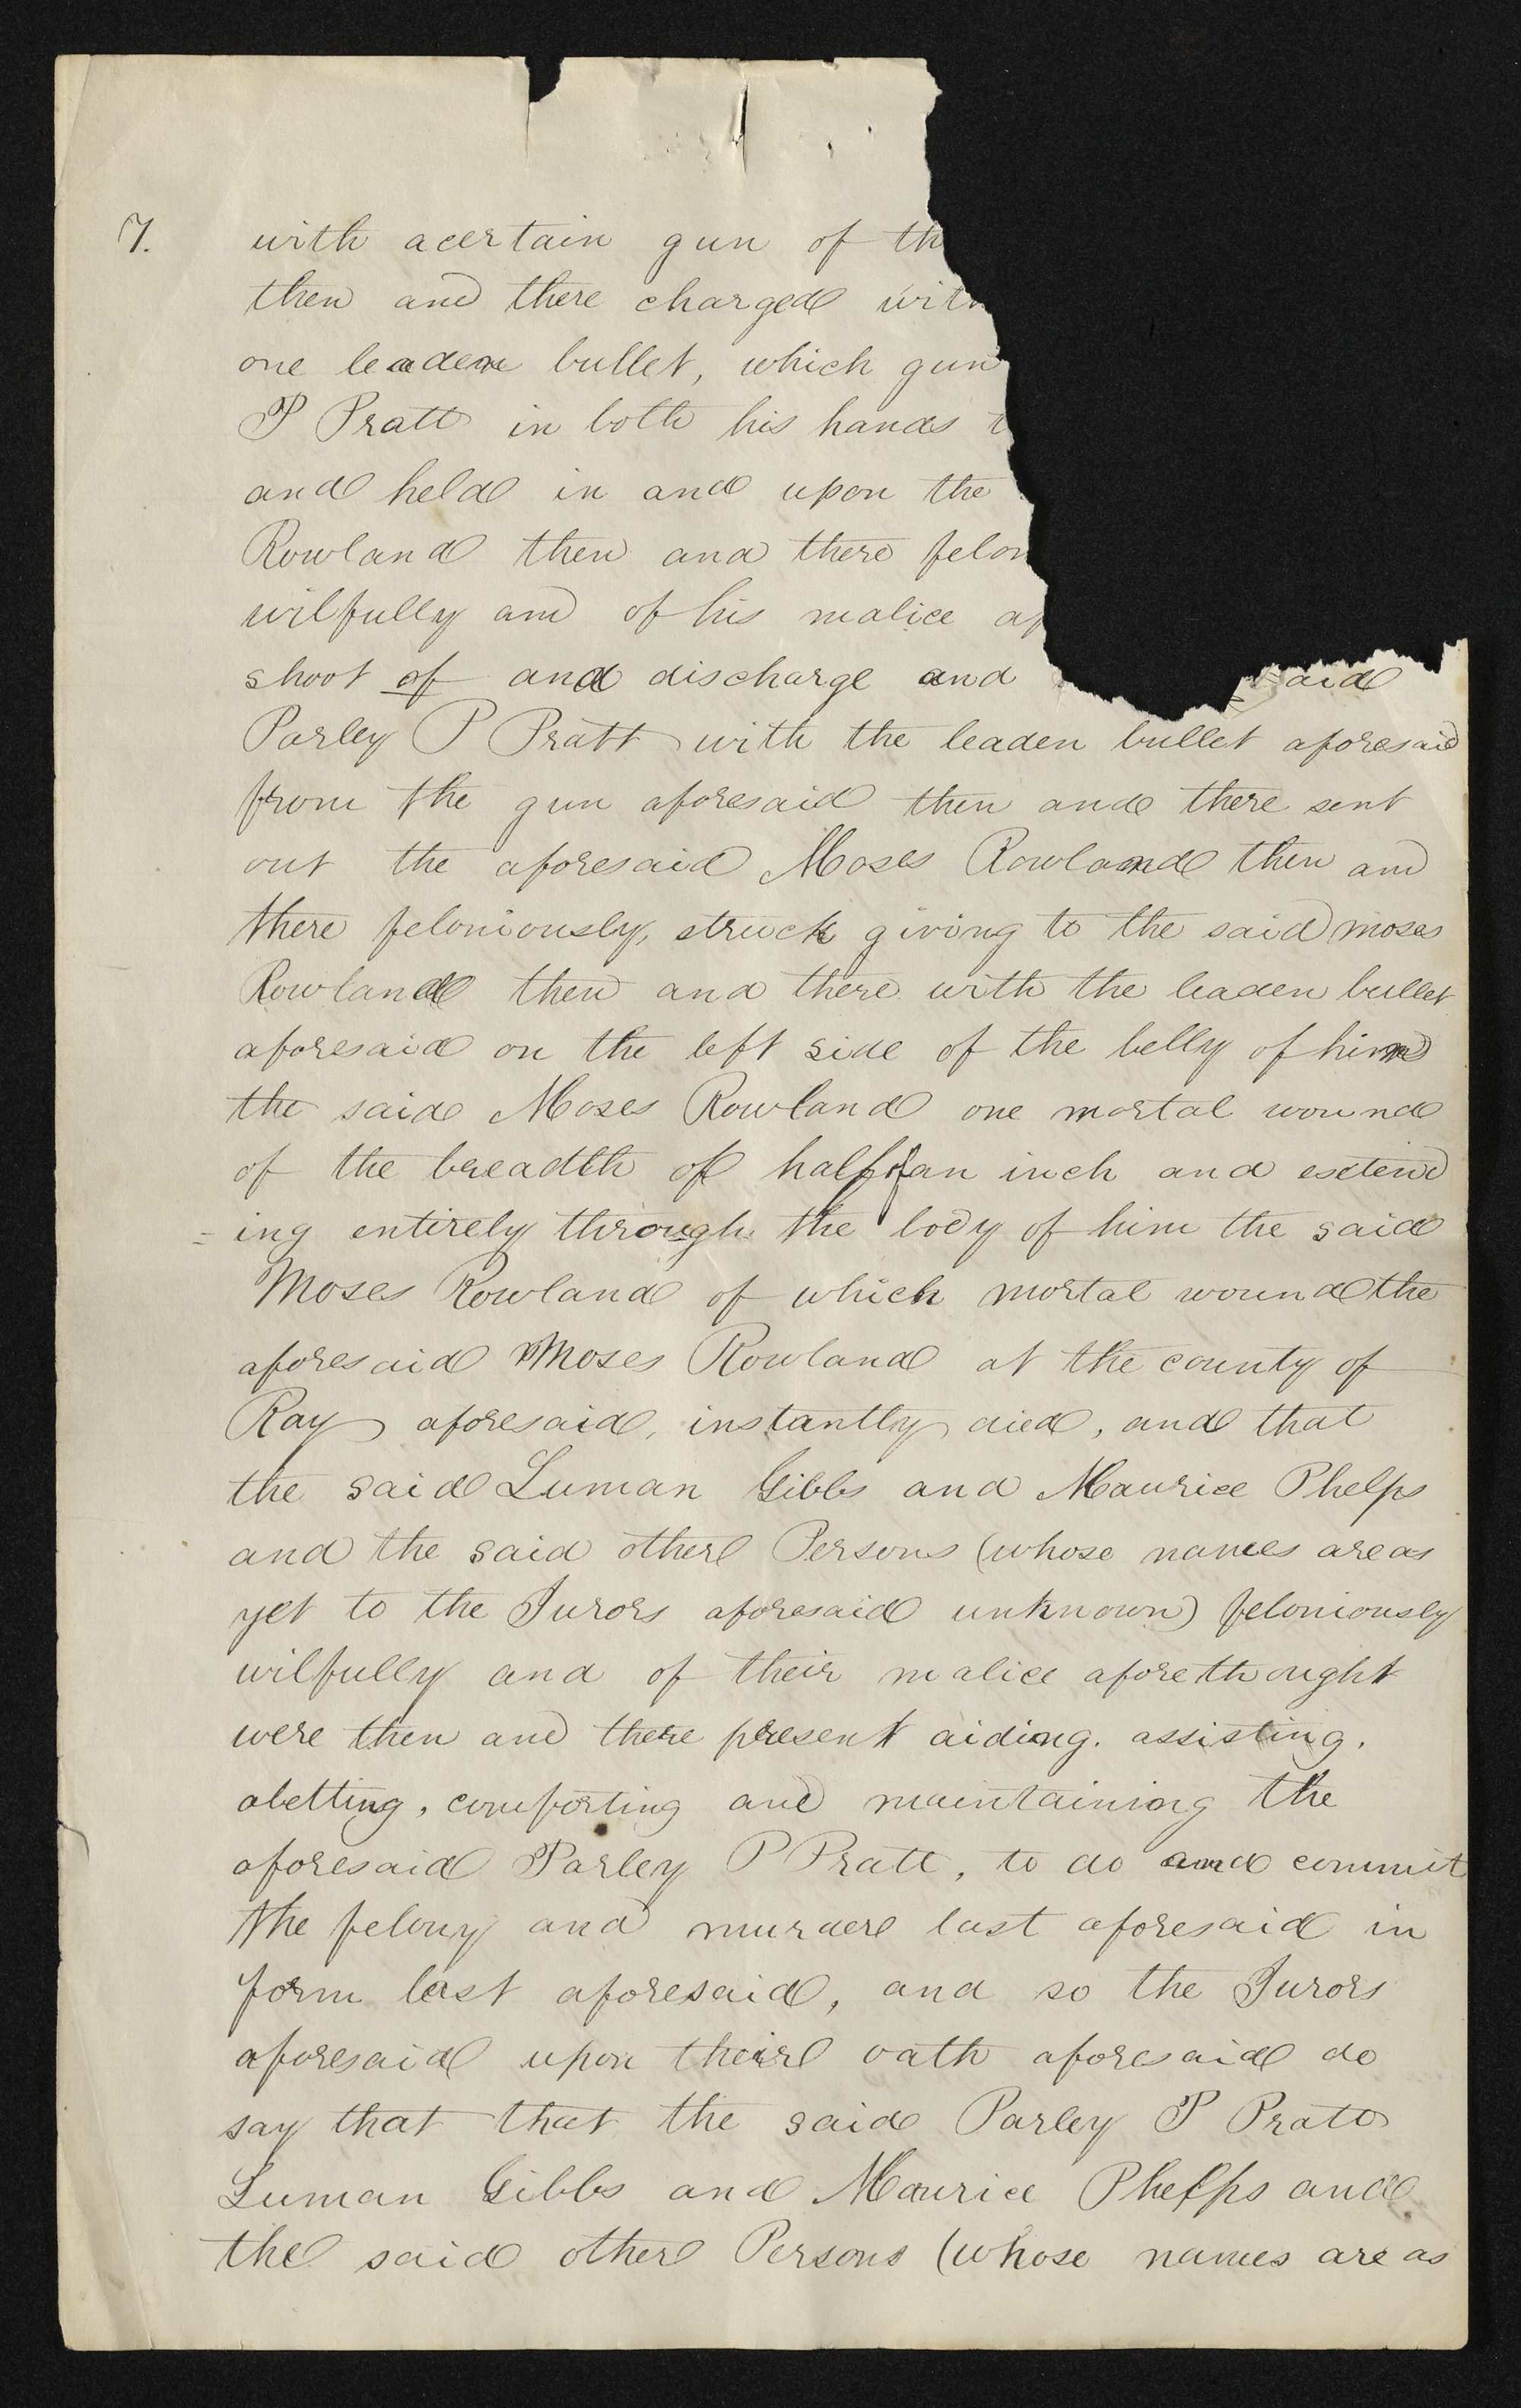 7. with acertain gun of th
then and there charged with
one leaden bullet, which gun
P Pratt in both his hands t
and held in and upon the
Rowland then and there felon
wilfully and of his malice af
shoot of and discharge and aid
Parley P Pratt with the leaden bullet aforesaid
from the gun aforesaid then and there sent
out the aforesaid Moses Rowland then and
there feloniously, struck giving to the said moses
Rowland then and there with the leaden bullet
aforesaid on the left side of the belly of him
the said Moses Rowland one mortal wound
of the breadth of half an inch and extend
=ing entirely through the body of him the said
Moses Rowland of which mortal wound the
aforesaid Moses Rowland at the county of
Ray aforesaid, instantly died, and that
the said Luman Gibbs and Maurice Phelps
and the said other Persons (whose names are as
yet to the Jurors aforesaid unknown) feloniously
wilfully and of their malice aforethought
were then and there present aiding. assisting.
abetting, comforting and maintaining the
aforesaid Parley P Pratt, to do and commit
the felony and murder last aforesaid in
form last aforesaid, and so the Jurors
aforesaid upon their oath aforesaid do
say that that the said Parley P Pratt
Luman Gibbs and Maurice Phelps and
the said other Persons (whose names are as